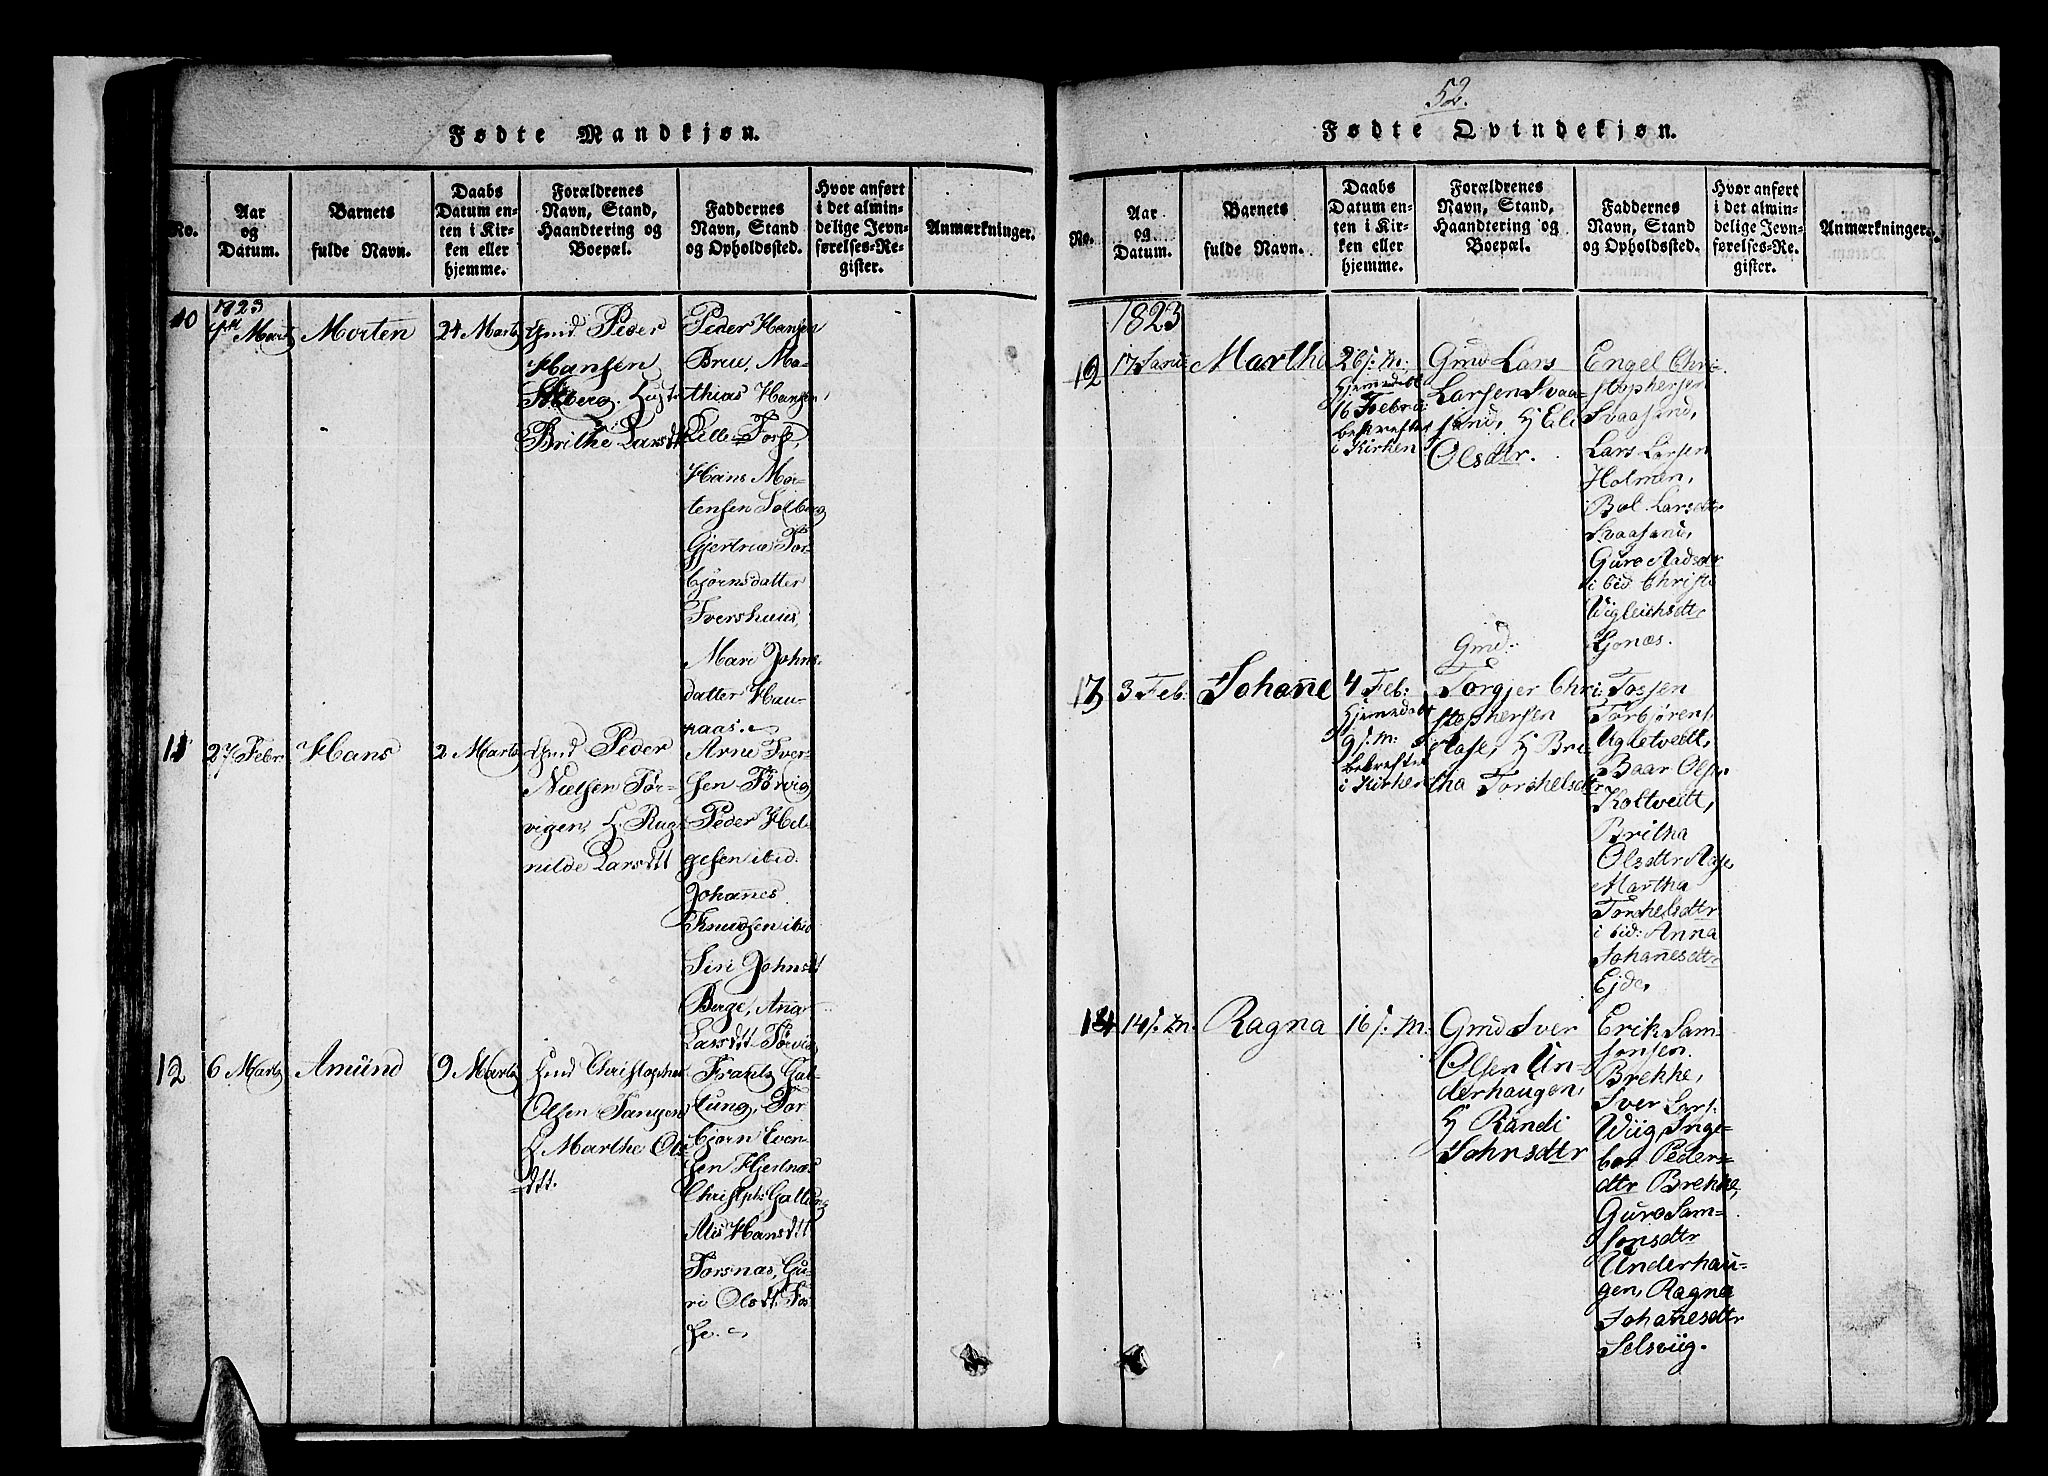 Fødte Mandkjøn.
No.
Aar
og
Datum.
Barnets
fulde Navn.
Daabs
Datum en-
ten i Kir-
ken eller
hjemme.
Forældrenes
Navn, Stand,
Haandtering og
Boepæl.
Faddernes
Navn, Stand
og Opholdssted.
Hvor anført
i det almin-
delige Jevn-
førelses-Re-
gister.
Anmærkninger.
10
1823
Marts
Morten
24 Marts
Gmd Peder
Hansen
Solberg
Brithe Larsdtt
Peder Hansen
Brue, Ma-
thias Hansen
Lille-Torse,
Hans Mor-
tensen Solberg
Gjertrue Tor-
bjørnsdatter
Ivershaus,
Mari Johns
datter Hau-
kaas.
11
27 Febr
Hans
2 Marts
Gmd Peder
Nielsen Tør-
vigen, H. Rag-
nilde Larsdtt
Arne Iver-
sen Tørvig
Peder Hel-
gesen ibid.
Johañes
Knudsen ibid
Siri Johnsdt
Berge, Aña
Larsdtt Tørvig
12
6 Marts
Amund
9 Marts
Gmd Christopher
Olsen Tangen
H Marthe Ols-
dtt.
Frantz Gal-
tung, Tor
bjørn Even-
sen Hjertnæs
Christoph Galtung
Alis Hansdtt
Torsnas, Gu-
ri Olsdt Tor
se.
52.
Fødte Qvindekjøn.
No.
Aar
og
Datum.
Barnets
fulde Navn.
Daabs
Datum en-
ten i Kir-
ken eller
hjemme.
Forældrenes
Navn, Stand,
Haandtering og
Boepæl.
Faddernes
Navn, Stand
og Opholdssted.
Hvor anført
i det almin-
delige Jevn-
førelses-Re-
gister.
Anmærkninger.
1823
12
17 Janu:
Martha
26 s. m:
Hjemedøbt
16 Febru:
bekreftet
i Kirken
Gmd Lars
Larsen Svaa-
sand, H Eli
Olsdtr.
Engel Chri-
stophersen
Svaasand,
Lars Larsen
Holmen,
Bol Larsdtr
Svaasand,
Guro Aadsdtr
ibid Christi
Vigleichsdtr
Lionæs.
13
3 Feb:
Johañe
4 Feb:
Hjemedøbt
9 s. m:
bekreftet
i Kirken
Gmd:
Torgjer Chri
stophersen
Aase, H Bri
tha Torkelsdtr
Tosjen
Torbjørens:
Agletveitt,
Baar Olsen
Koltveitt,
Britha
Olsdtr Aase
Martha
Torkelsdtr
ibid: Anna
Johañesdtr
Ejde,
14
14 s. m.
Ragna
16 s. m.
Gmd Iver
Olsen Un-
derhaugen,
H Randi
Johnsdtr
Erik Sam-
sonsen
Brekke,
Iver Lars:
Wiig, Inge-
bor Peders-
dtr Brekke,
Guro Sam-
sonsdtr
Underhau-
gen, Ragna
Johañesdtr
Selsviig.